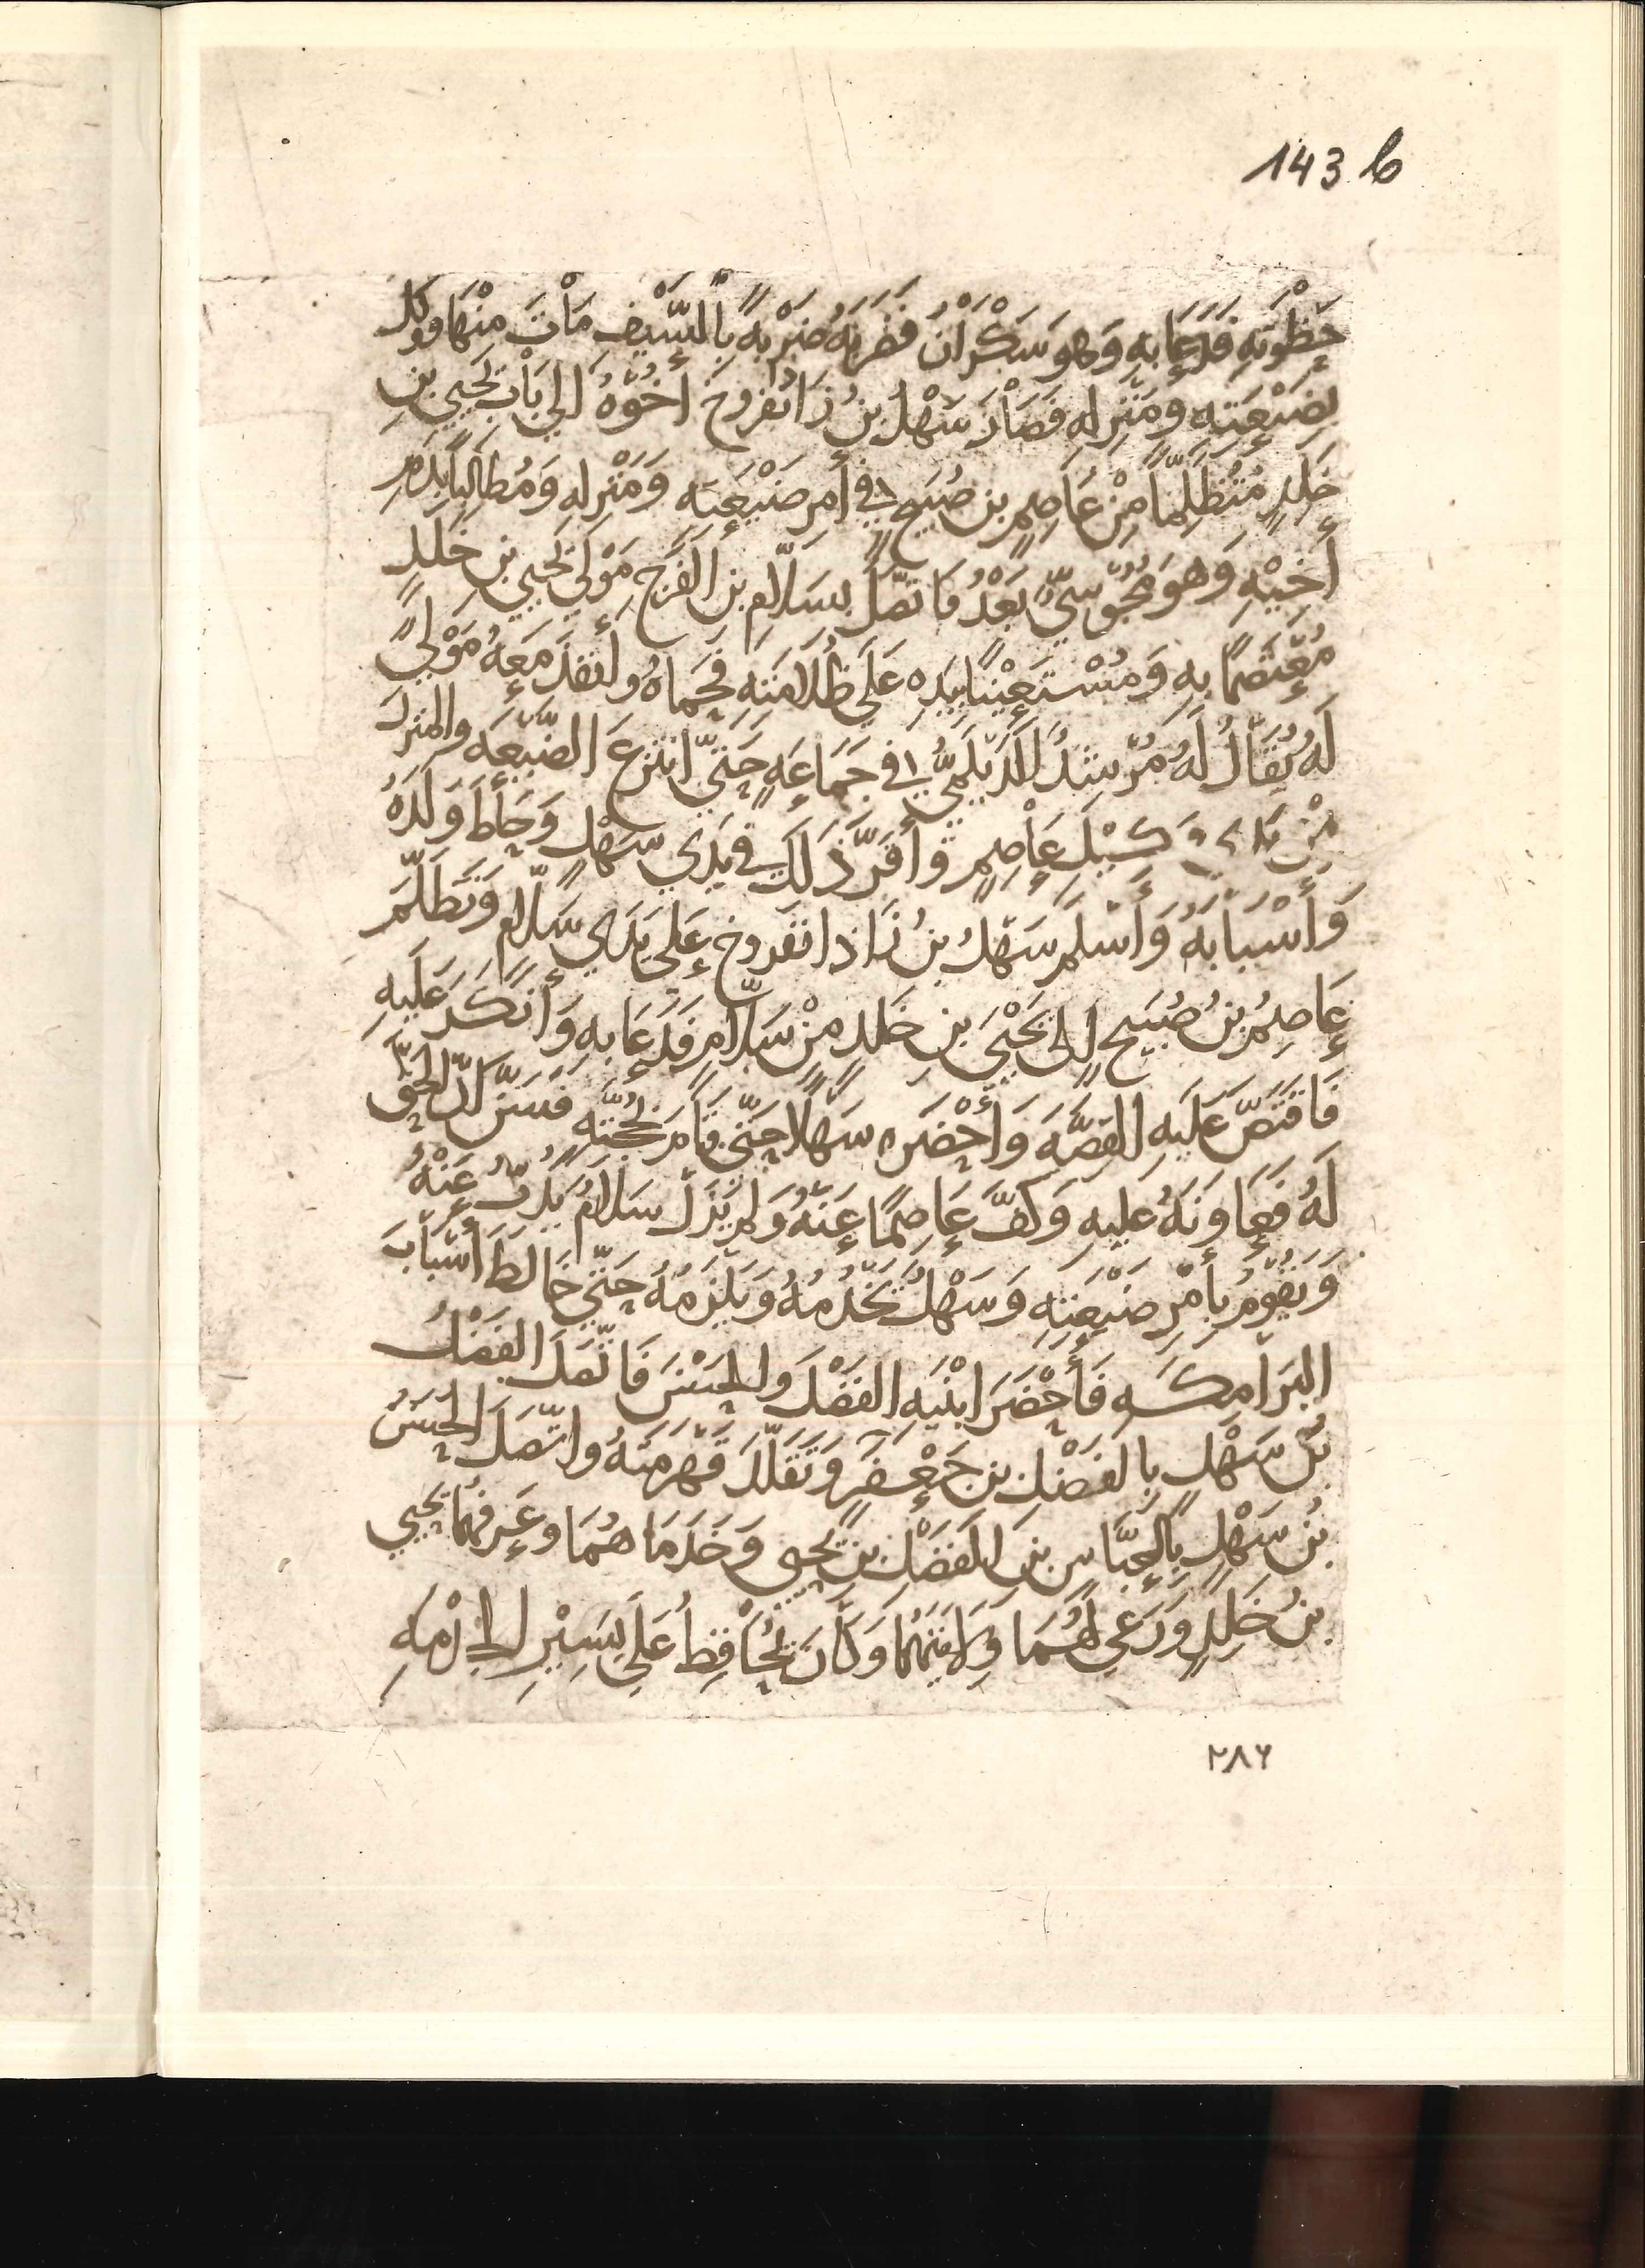 143 b
حَظْوَتِهِ فَدَعَا بِهِ وَهو سَكْرَانُ فَضَرَبَهُ ضَرْبةً بِالسَّيْفِ مَاتَ مِنْهَا وَوكّلَ
بِضَيْعَتِهِ ومَنْزِلِهِ فَصَارَ سَهْلُ بنُ زَاذانفروخ أخُوهُ الى بَابِ يَحْيى بنِ
خَلدٍ مُتَظَلِّمًا مِنْ عَاصِمِ بن صُبَيحٍ فِي أمرِ ضَيْعَتِه وَمَنْزِلِهِ وَمُطالِبًا بِدَمِ
أَخِيْهِ وَهو مَجُوسِيٌّ بَعْدُ فَاتّصَلَ بِسَلّامِ بنِ الفَرَجِ مَوْلَى يَحْيى بنِ خَلدٍ
مُعْتَصمًا بهِ وَمُسْتَعِيْنًا بِيَدِه عَلَى ظُلَامَتِه فَحَمَاهُ وأنفذَ مَعهُ مَوْلىً
لَهُ يُقَالُ لَهُ مُرْشدٌ الدَّيلَمِيُّ في جَمَاعَةٍ حَتَّى انتزعَ الضَّيعَة والمنزلَ
مِنْ يَد وَكيلِ عَاصِمٍ وَأقَرَّ ذَلكَ في يَدي سَهْلٍ وَحَاطَ وَلَدَهُ
وَأَسْبَابَهُ وَأَسْلَمَ سَهْلُ بنُ زَاذانفروخ عَلى يَدَي سَلّامٍ وَتَظَلَّمَ
عَاصِمُ بنُ صُبَيحٍ إلى يَحْيَى بنِ خَلدٍ مِنْ سَلّامٍ فَدَعَا بهِ وَأنكَرَ عَلَيهِ
فَاقتَصَّ عَلَيهِ القِصَّةَ وَأَحْضَرَه سَهْلًا حَتَّى قَامَ بِحُجَّتِهِ فَسَرَّ أنّ الحَقَّ
لَهُ فَعَاوَنَهُ عليهِ وَكَفَّ عَاصِمًا عَنْهُ وَلم يَزَلْ سَلامٌ يَذبُّ عَنْهُ
وَيَقُومُ بِأَمْرِ ضَيعَتِهِ وَسَهْلٌ يَخْدُمُهُ وَيَلْزَمُهُ حَتَّى خَالَطَ أسْبَابَ
البَرَامِكَةِ فَأَحْضَرَ ابْنَيهِ الفَضْلَ وَالحَسَنَ فَاتَّصَلَ الفَضْلُ
بنُ سَهْلٍ بِالفَضْلِ بن جَعْفَرٍ وَتَقَلّدَ قَهْرَمَتَهُ واتّصَلَ الحَسَنُ
بنُ سَهْلٍ بِالعَبَّاسِ بنِ الفَضْلِ بنِ يَحيى وَخَدَمَا هُمَا وعَرفَهُمَا يَحيى
بنُ خَلدٍ وَرَعى لَهُمَا وِلَايَتَهُمَا وَكَانَ يُحَافِظُ عَلى يَسِيْرِ الخِدْمَةِ
٢٨٦